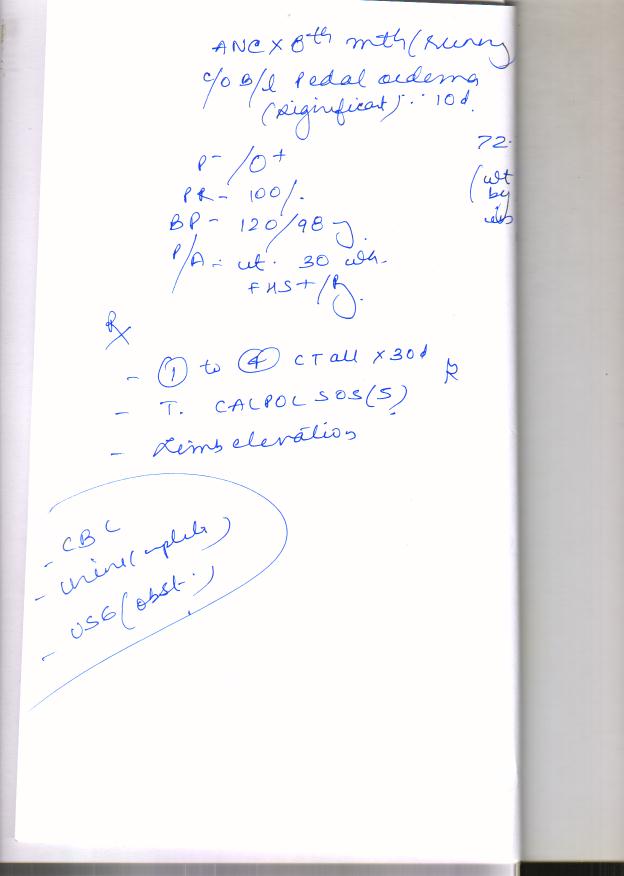 ANC X 8th mth (running
C/O B/L Pedal oedema
(significant) ∵ 10d.
72
(wt
by
P - /O+
PR - 100/.
BP - 120/98
P/A - ut. 30 wk.
FHS + /R
Rx
- ① to ④ CT all x 30d
- T. CALPOL SOS (5)
- Limb elevation
- CBC
- Urine (complete)
- USG (obst.)